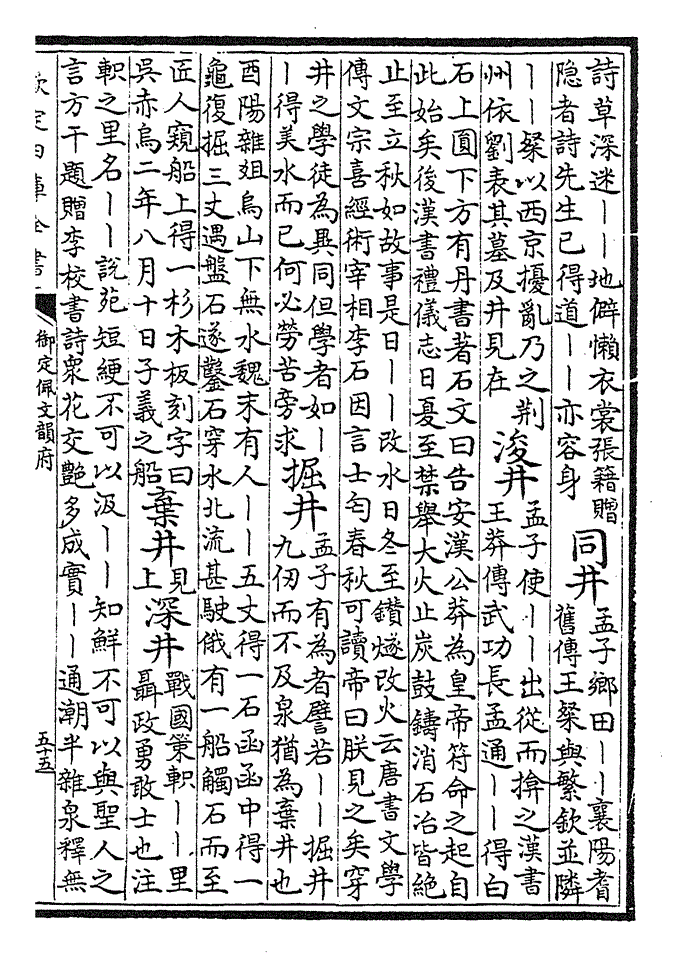 詩草深迷——地僻懶衣裳張籍贈
隐者詩先生已得道——亦容身
同井
孟子鄉田——襄陽耆
舊傳王粲與繁欽並隣
——粲以西京擾亂乃之荆
州依劉表其墓及井見在
浚井
孟子使——出從而揜之漢書
王莽傳武功長孟通——得白
石上圓下方有丹書著石文曰告安漢公莽為皇帝符命之起自
此始矣後漢書禮儀志日夏至禁舉大火止炭鼓鑄消石冶皆絕
止至立秋如故事是日——改水日冬至鑽燧改火云唐書文學
傳文宗喜經術宰相李石因言士匄春秋可讀帝曰朕見之矣穿
井之學徒為異同但學者如—
—得美水而已何必勞苦旁求
掘井
孟子有為者譬若——掘井
九仞而不及泉猶為棄井也
酉陽雜俎烏山下無水魏末有人——五丈得一石函函中得一
龜復掘三丈遇盤石遂鑿石穿水北流甚駛俄有一船觸石而至
匠人窺船上得一杉木板刻字曰
吳赤烏二年八月十日子義之船
棄井
見
上
深井
戰國策軹——里
聶政勇敢士也注
軹之里名——說苑短綆不可以汲——知鮮不可以與聖人之
言方干題贈李校書詩衆花交艶多成實——通潮半雜泉釋無
欽定四庫全書
御定佩文韻府
五十五